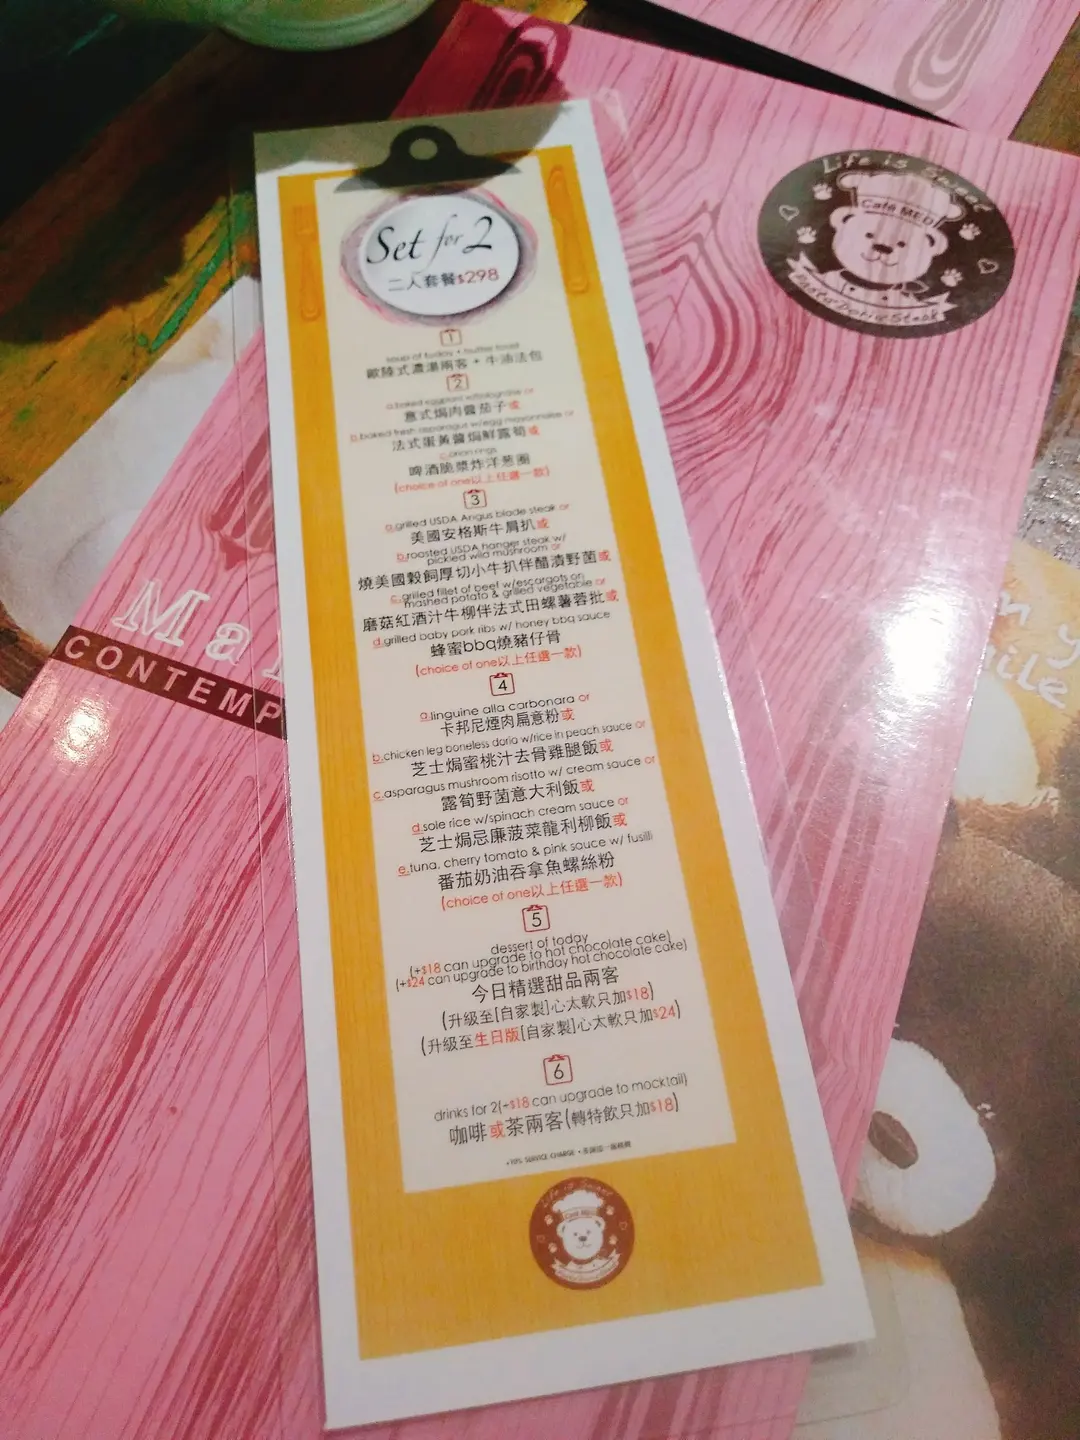 Life is Sweet
Café MED
Pasta Doria Steak
Set for 2
二人套餐$298
1
soup of today + butter toast
歐陸式濃湯兩客 + 牛油法包
2
a.baked eggplant w/bolognaise or
意式焗肉醬茄子或
b.baked fresh asparagus w/egg mayonnaise or
法式蛋黃醬焗鮮露筍或
c.onion rings
啤酒脆漿炸洋葱圈
(choice of one以上任選一款)
3
a.grilled USDA Angus blade steak or
美國安格斯牛肩扒或
b.roasted USDA hanger steak w/
pickled wild mushroom or
燒美國穀飼厚切小牛扒伴醋漬野菌或
c.grilled fillet of beef w/escargots on
mashed potato & grilled vegetable or
蘑菇紅酒汁牛柳伴法式田螺薯蓉批或
d.grilled baby pork ribs w/ honey bbq sauce
蜂蜜bbq燒豬仔骨
(choice of one以上任選一款)
4
a.linguine alla carbonara or
卡邦尼煙肉扁意粉或
b.chicken leg boneless doria w/rice in peach sauce or
芝士焗蜜桃汁去骨雞腿飯或
c.asparagus mushroom risotto w/ cream sauce or
露筍野菌意大利飯或
d.sole rice w/spinach cream sauce or
芝士焗忌廉菠菜龍利柳飯或
e.tuna, cherry tomato & pink sauce w/ fusilli
番茄奶油吞拿魚螺絲粉
(choice of one以上任選一款)
5
dessert of today
(+$18 can upgrade to hot chocolate cake)
(+$24 can upgrade to birthday hot chocolate cake)
今日精選甜品兩客
(升級至[自家製]心太軟只加$18)
(升級至生日版[自家製]心太軟只加$24)
6
drinks for 2(+$18 can upgrade to mocktail)
咖啡或茶兩客(轉特飲只加$18)
+10% SERVICE CHARGE
Life is Sweet
Café MED
Ma
CONTEMP